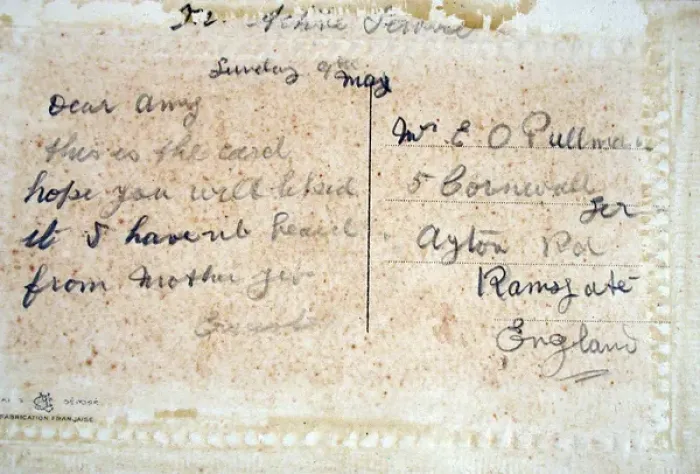 Active Service
Sunday 9th May
Dear Amy
this is the card
hope you will
it I havent heard
from Mother yet
Mrs E O Pullman
5 Cornwall
Ter
Ayton Rd
Ramsgate
England
FABRICATION FRANÇAISE